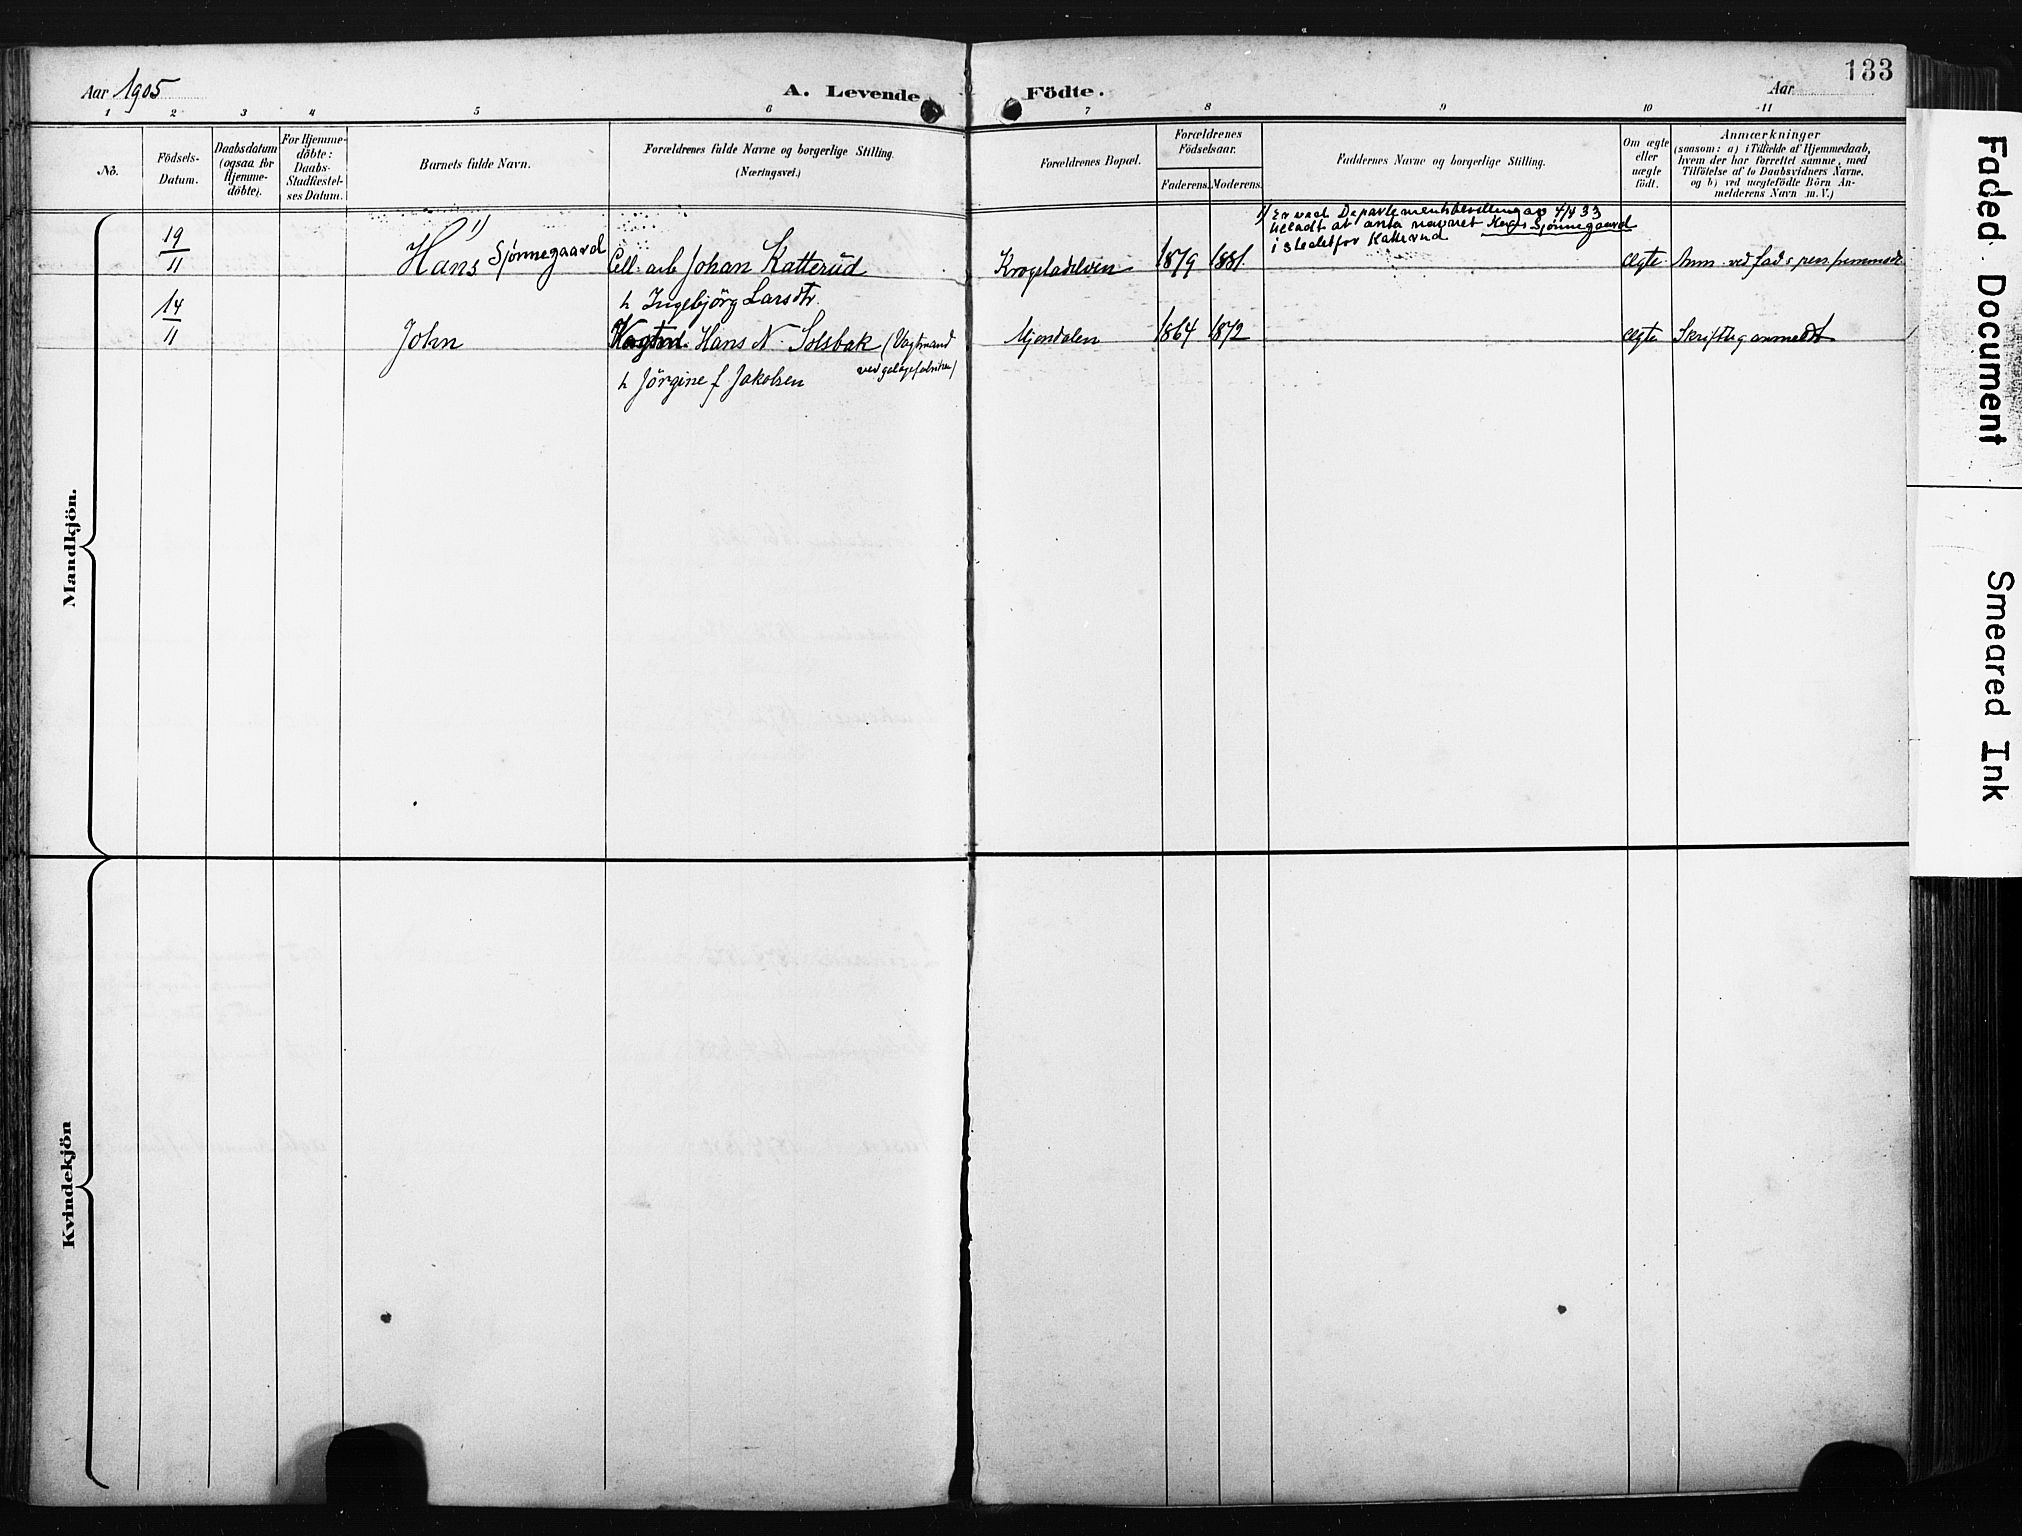 Aar 1905
A. Levende Födte.
Aar
133
1 2 3 4 5 6 7 8 9 10 11
No.
Födsels-
Datum.
Daabsdatum
(ogsaa for
Hjemme-
döbte).
For Hjemme-
döbte:
Daabs-
Stadfæstel-
ses Datum.
Barnets fulde Navn.
Forældrenes fulde Navne og borgerlige Stilling.
(Næringsvei.)
Forældrenes Bopæl.
Forældrenes
Födselsaar.
Faderens. Moderens.
Faddernes Navne og borgerlige Stilling.
Om ægte
eller
uægte
födt.
Anmærkninger
(saasom: a) i Tilfælde af Hjemmedaab,
hvem der har forrettet samme, med
Tilföielse af to Daabsvidners Navne,
og b) ved uægtefödte Börn An-
melderens Navn m. V.)
Mandkjön.
1) Er ved Departementsbevilling av 4/4 33
tilladt at anta navnet Sjønnegaard
i stedetfor Katterud
19/11 Hans 1) Sjønnegaard Cell. arb Johan Katterud 1879 1881 Ægte Anm. ved fad
h Ingebjörg Larsdtr.
14/11 John Hans N. Solsbak (Vagtmand Mjøndalen 1864 1872 Ægte Skriftlig anmeldt
h Jörgine f Jakobsen
Kvindekjön
Faded Document
Smeared Ink